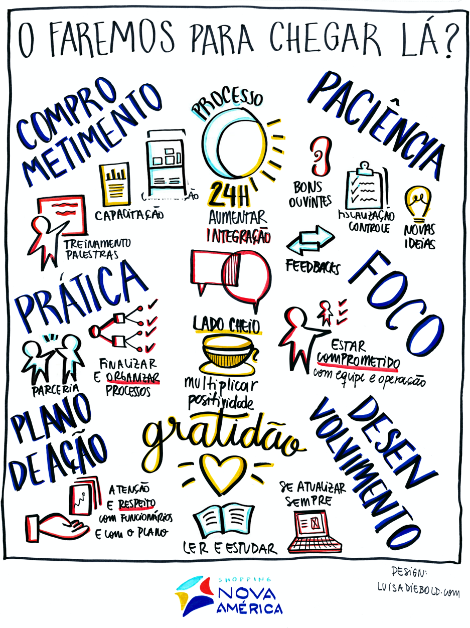 O FAREMOS PARA CHEGAR LÁ?
COMPRO
METIMENTO
PROCESSO
PACIÊNCIA
24H
AUMENTAR
INTEGRAÇÃO
CAPACITAÇÃO
TREINAMENTO
PALESTRAS
BONS
OUVINTES
FISCALIZAÇÃO
CONTROLE
NOVAS
IDEIAS
FEEDBACKS
PRÁTICA
FOCO
PARCERIA
FINALIZAR
E ORGANIZAR
PROCESSOS
LADO CHEIO
multiplicar
positividade
ESTAR
COMPROMETIDO
com equipe e operação
PLANO
DE AÇÃO
gratidão
DESEN
VOLVIMENTO
ATENÇÃO
E RESPEITO
COM FUNCIONÁRIOS
E COM O PLANO
LER E ESTUDAR
SE ATUALIZAR
SEMPRE
SHOPPING
NOVA
AMÉRICA
DESIGN:
LUISADIEBOLD.com